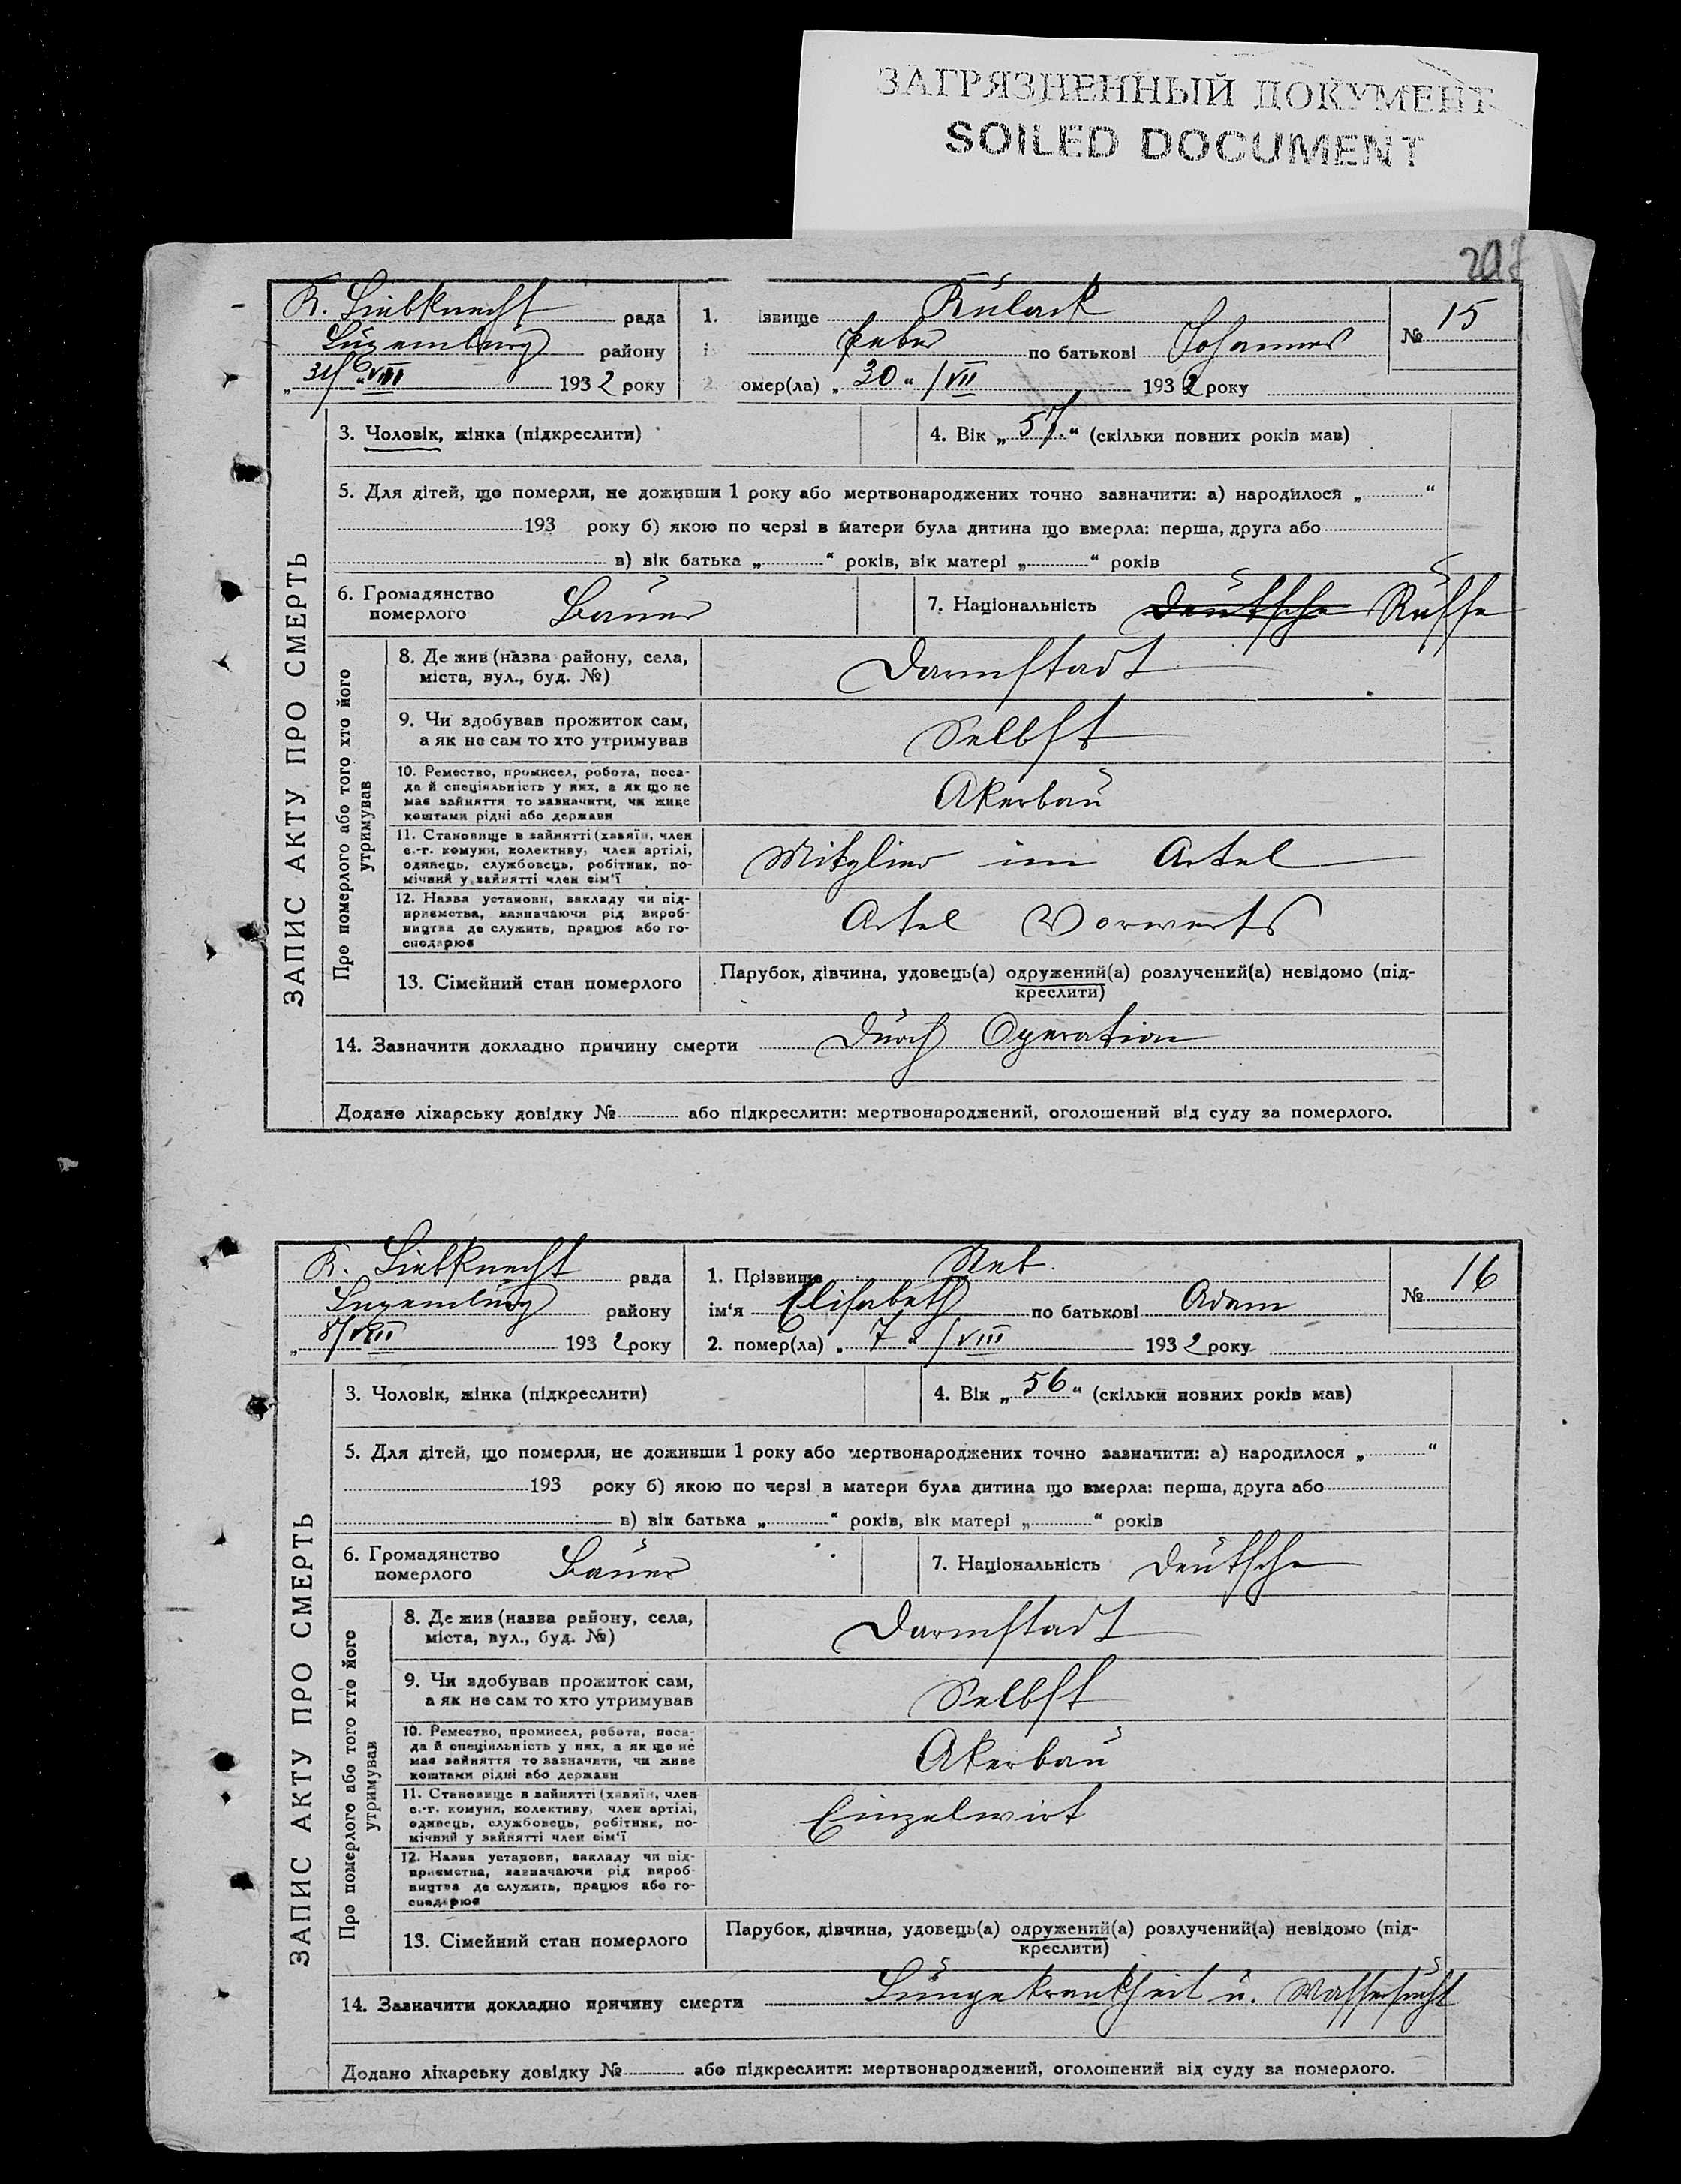 ЗАГРЯЗНЕННЫЙ ДОКУМЕНТ
SOILED DOCUMENT
K. Liebknecht рада
Luxemburg району
„31/VIII 1932 року
1. ізвище Kulack
Peter по батькові Johannes
омер(ла) „30“ /VII 1932 року
№ 15
ЗАПИС АКТУ ПРО СМЕРТЬ
3. Чоловік, жінка (підкреслити)
4. Вік „57“ (скільки повних років мав)
5. Для дітей, що померли, не доживши 1 року або мертвонароджених точно зазначити: а) народилося „ “
193 року б) якою по черзі в матери була дитина що вмерла: перша, друга або
в) вік батька „ “ років, вік матері „ “ років
6. Громадянство померлого Bauer
7. Національність Deutsche Russe
Про померлого або того хто його утримував
8. Де жив (назва району, села,
міста, вул., буд. №)
Darmstadt
9. Чи здобував прожиток сам,
а як не сам то хто утримував
Selbst
10. Ремество, промисел, робота, поса-
да й спеціяльність у них, а як що не
має зайняття то зазначити, чи живе
коштами рідні або держави
Akerbau
11. Становище в зайнятті (хазяїн, член
с.-г. комуни, колективу, член артілі,
одинець, службовець, робітник, по-
мічний у зайнятті член сім'ї
Mitglied im Artel
12. Назва установи, закладу чи під-
приємства, зазначаючи рід вироб-
ництва де служить, працює або го-
сподарює
Artel Vorwerts
13. Сімейний стан померлого
Парубок, дівчина, удовець(а) одружений(а) розлучений(а) невідомо (під-
креслити)
14. Зазначити докладно причину смерти Durch Operation
Додано лікарську довідку № або підкреслити: мертвонароджений, оголошений від суду за померлого.
K. Liebknecht рада
Luxemburg району
„8/VIII 1932 року
1. Прізвище Neb.
ім'я Elisabeth по батькові Adam
2. помер(ла) „7“ /VIII 1932 року
№ 16
ЗАПИС АКТУ ПРО СМЕРТЬ
3. Чоловік, жінка (підкреслити)
4. Вік „56“ (скільки повних років мав)
5. Для дітей, що померли, не доживши 1 року або мертвонароджених точно зазначити: а) народилося „ “
193 року б) якою по черзі в матери була дитина що вмерла: перша, друга або
в) вік батька „ “ років, вік матері „ “ років
6. Громадянство померлого Bauer
7. Національність Deutsche
Про померлого або того хто його утримував
8. Де жив (назва району, села,
міста, вул., буд. №)
Darmstadt
9. Чи здобував прожиток сам,
а як не сам то хто утримував
Selbst
10. Ремество, промисел, робота, поса-
да й спеціяльність у них, а як що не
має зайняття то зазначити, чи живе
коштами рідні або держави
Akerbau
11. Становище в зайнятті (хазяїн, член
с.-г. комуни, колективу, член артілі,
одинець, службовець, робітник, по-
мічний у зайнятті член сім'ї
Einzelwirt
12. Назва установи, закладу чи під-
приємства, зазначаючи рід вироб-
ництва де служить, працює або го-
сподарює
13. Сімейний стан померлого
Парубок, дівчина, удовець(а) одружений(а) розлучений(а) невідомо (під-
креслити)
14. Зазначити докладно причину смерти Lungekrankheit u. Wassersucht
Додано лікарську довідку № або підкреслити: мертвонароджений, оголошений від суду за померлого.